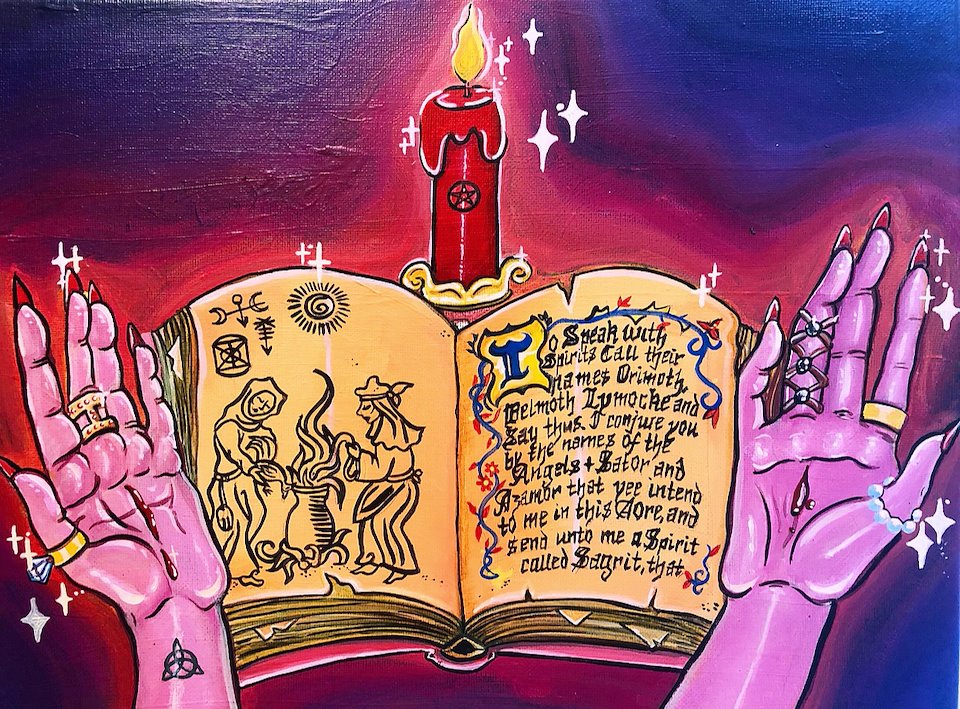 To Speak with
Spirits Call their
names Orimoth,
Belmoth Lymocke and
Say thus. I conjure you
by the names of the
Angels + Sator and
Azamor that yee intend
to me in this Aore, and
send unto me a Spirit
called Sagrit, that